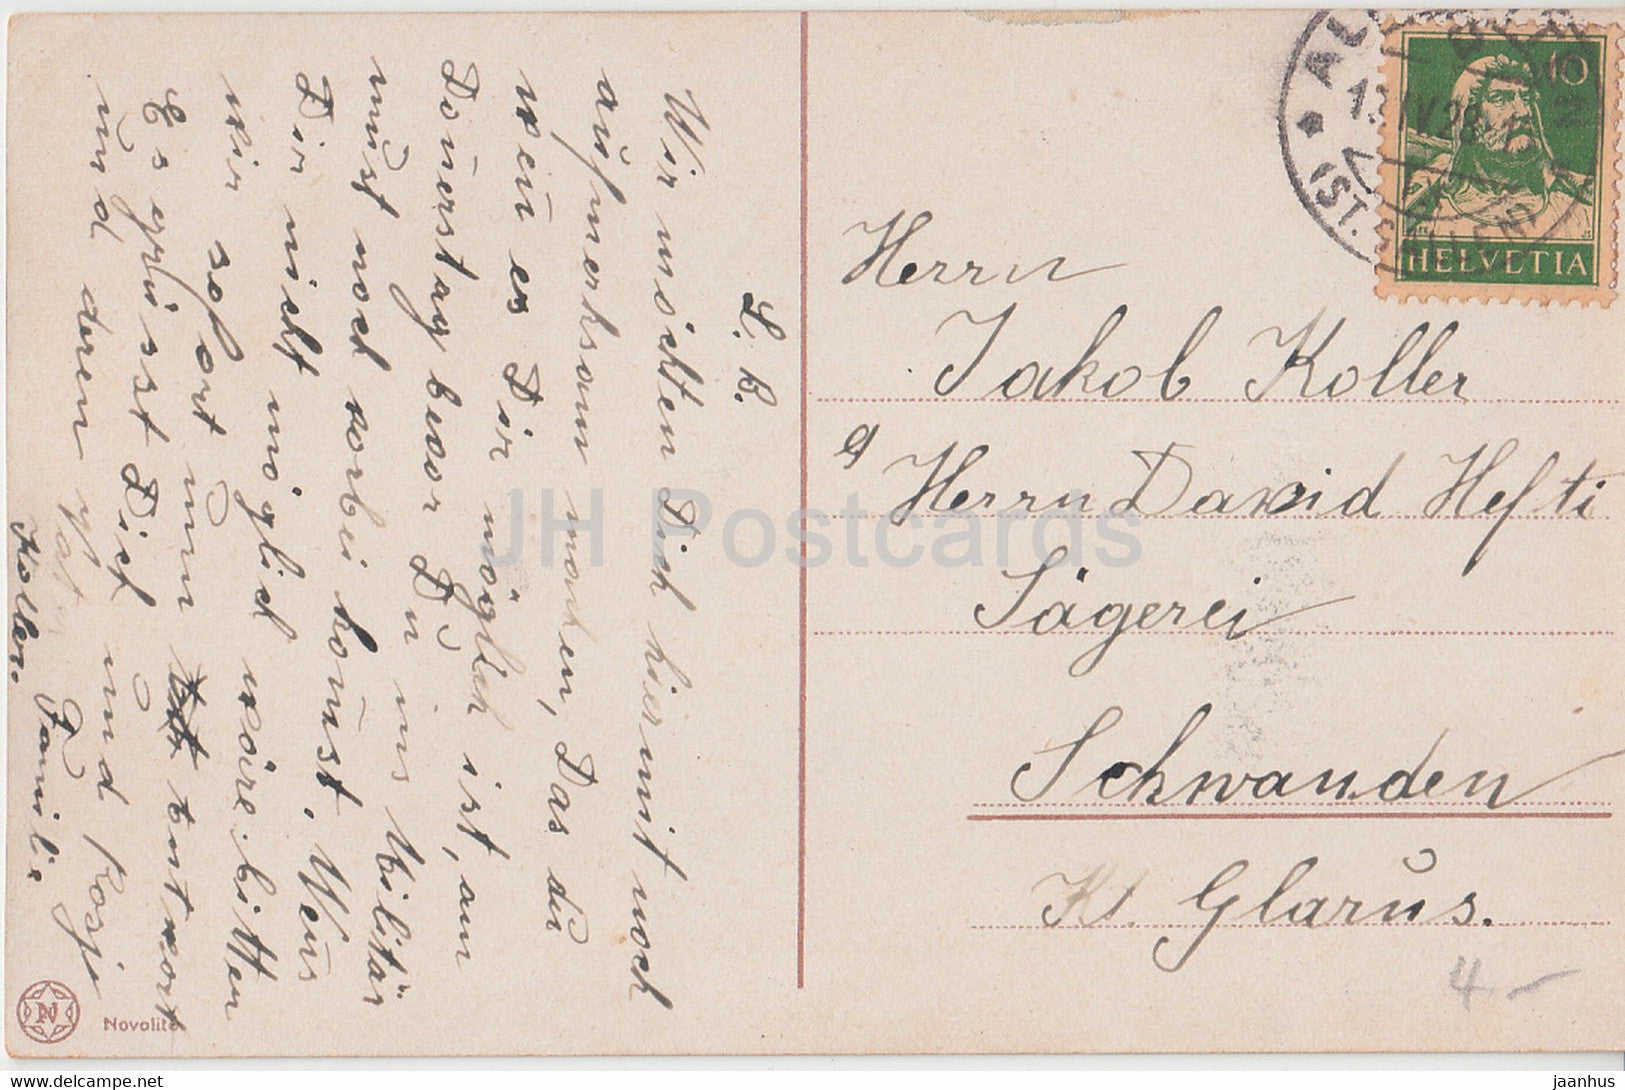 L. B.
Wir möchten Dich hiermit noch
aufmerksam machen, Das du
wen es Dir möglich ist, am
Donerstag bevor Du ins Militär
must noch vorbei komst, Wens
Dir nicht möglich wäre bitten
wir sofort um Entwort
Es grüsst Dich und Rosj
und deren
Familie
Koller.
Novolito
Herrn
Jakob Koller
Herrn David Hefti
Sägerei
Schwanden
Kt. Glarus.
4-
10
HELVETIA
(ST. GALLEN)
JH Postcards
jaanhus
www.delcampe.net